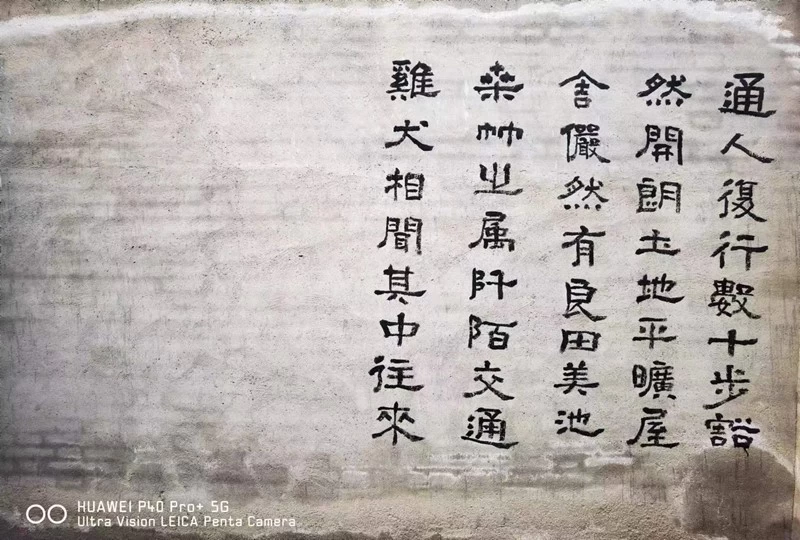 通人復行數十步豁
然開朗土地平曠屋
舍儼然有良田美池
桑竹之属阡陌交通
雞犬相聞其中往來
HUAWEI P40 Pro+ 5G
Ultra Vision LEICA Penta Camera